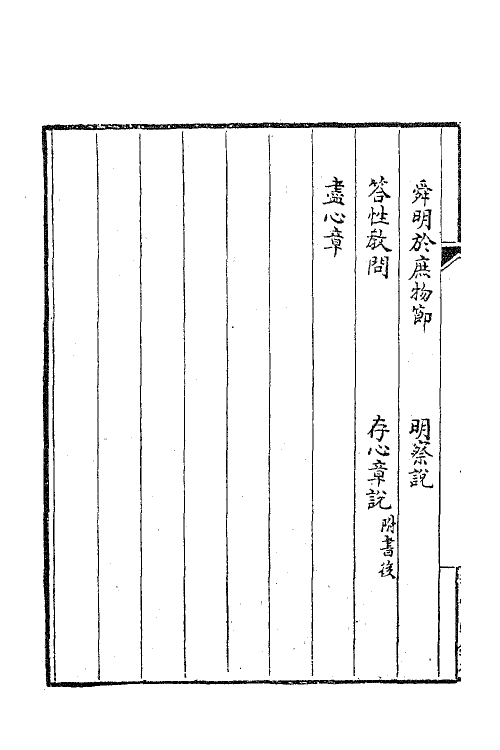 舜明於庶物節　明察說
答性教問　存心章說附書後
盡心章